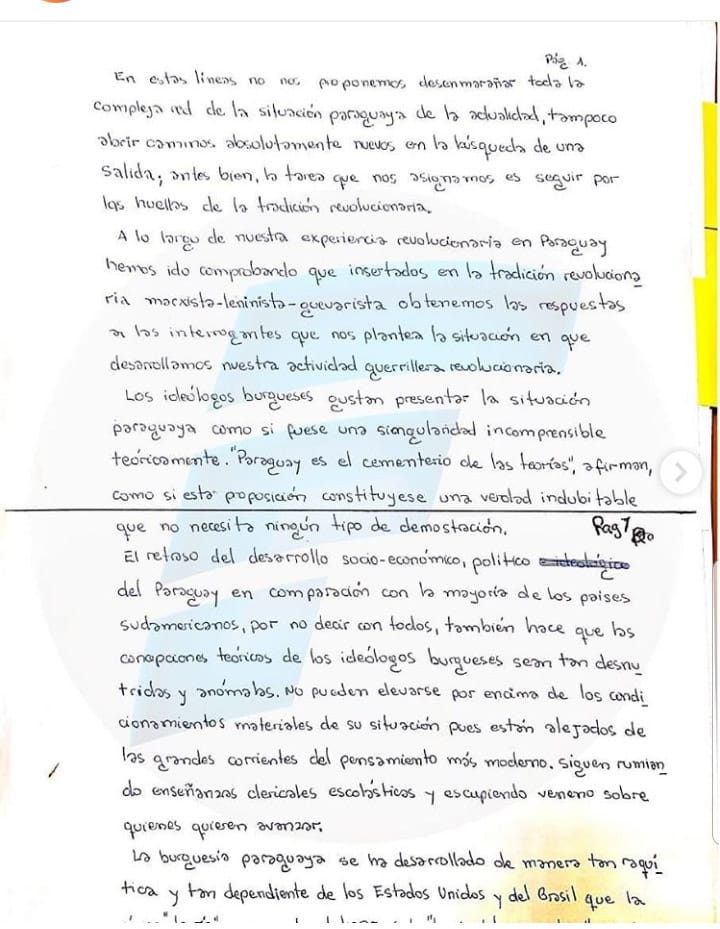 Pág 1.
En estas líneas no nos proponemos desenmarañar toda la
compleja red de la situación paraguaya de la actualidad, tampoco
abrir caminos absolutamente nuevos en la búsqueda de una
salida; antes bien, la tarea que nos asignamos es seguir por
las huellas de la tradición revolucionaria.
A lo largo de nuestra experiencia revolucionaria en Paraguay
hemos ido comprobando que insertados en la tradición revoluciona
ria marxista-leninista-guevarista obtenemos las respuestas
a las interrogantes que nos plantea la situación en que
desarrollamos nuestra actividad guerrillera revolucionaria.
Los ideólogos burgueses gustan presentar la situación
paraguaya como si fuese una siongularidad incomprensible
teóricamente. "Paraguay es el cementerio de las teorías", afirman,
como si esta proposición constituyese una verdad indubitable
que no necesita ningún tipo de demostación.
Pag 1
El retraso del desarrollo socio-económico, político e ideológico
del Paraguay en comparación con la mayoría de los paises
sudamericanos, por no decir con todos, también hace que las
concepciones teóricas de los ideólogos burgueses sean tan desnu
tridas y anómalas. No pueden elevarse por encima de los condi
cionamientos materiales de su situación pues están alejados de
las grandes corrientes del pensamiento más moderno. Siguen rumian
do enseñanzas clericales escolásticos y escupiendo veneno sobre
quienes quieren avanzar.
La burguesía paraguaya se ha desarrollado de manera tan raquí
tica y tan dependiente de los Estados Unidos y del Brasil que la